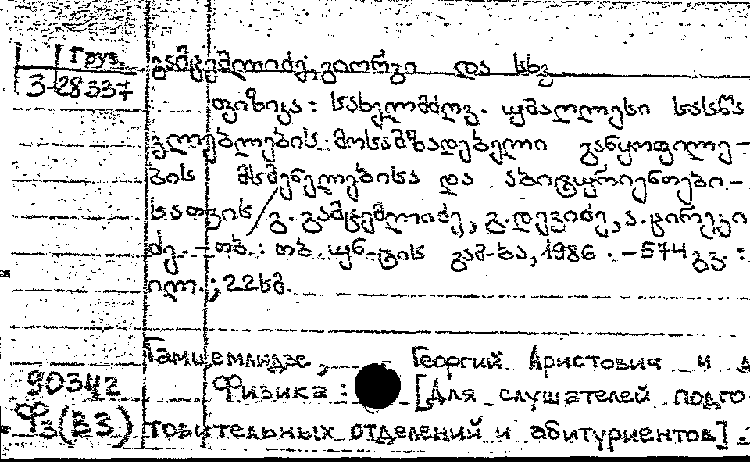 Груз.
3-28337
გამცემლიძე, გიორგი და სხვ
ფიზიკა: სახელმძღვ. უმაღლესი სასწა
ვლებლების მოსამზადებელი განყოფილე-
ბის მსმენელებისა და აბიტურიენტები-
სათვის / გ. გამცემლიძე, გ. დევიძე, ა. ცირეკი
ძე. - თბ.: თბ. უნ-ტის გამ-ბა, 1986. - 574 გვ. :
ილ.; 22 სმ.
Гамцемлидзе, Георгий Аристович и д
90342 Физика: [Для слушателей подго-
Фз(ВЗ) товительных отделений и абитуриентов] -